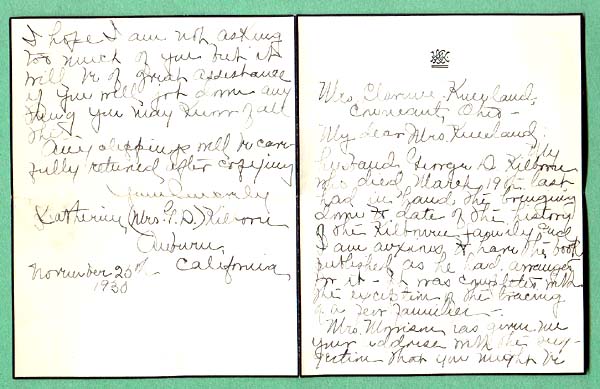 Mrs. Clarence Kneeland,
Conneaut, Ohio -
My dear Mrs. Kneeland:
My
husband George D Kilborne
who died March 19th last
had in hand the bringing
down to date of the history
of the Kilbourne family and
I am anxious to have the book
published as he had arranged
for it - It was completed with
the exception of the tracing
of a few families -
Mrs. Morrison has given me
your address with the sug-
gestion that you might be
I hope I am not asking
too much of you but it
will be of great assistance
if you will jot down any
thing you may know of all
this.
Any clippings will be care-
fully returned after copying
Yours sincerely
Katherine (Mrs. G. D.) Kilborne
Auburn,
California
November 20th
1930